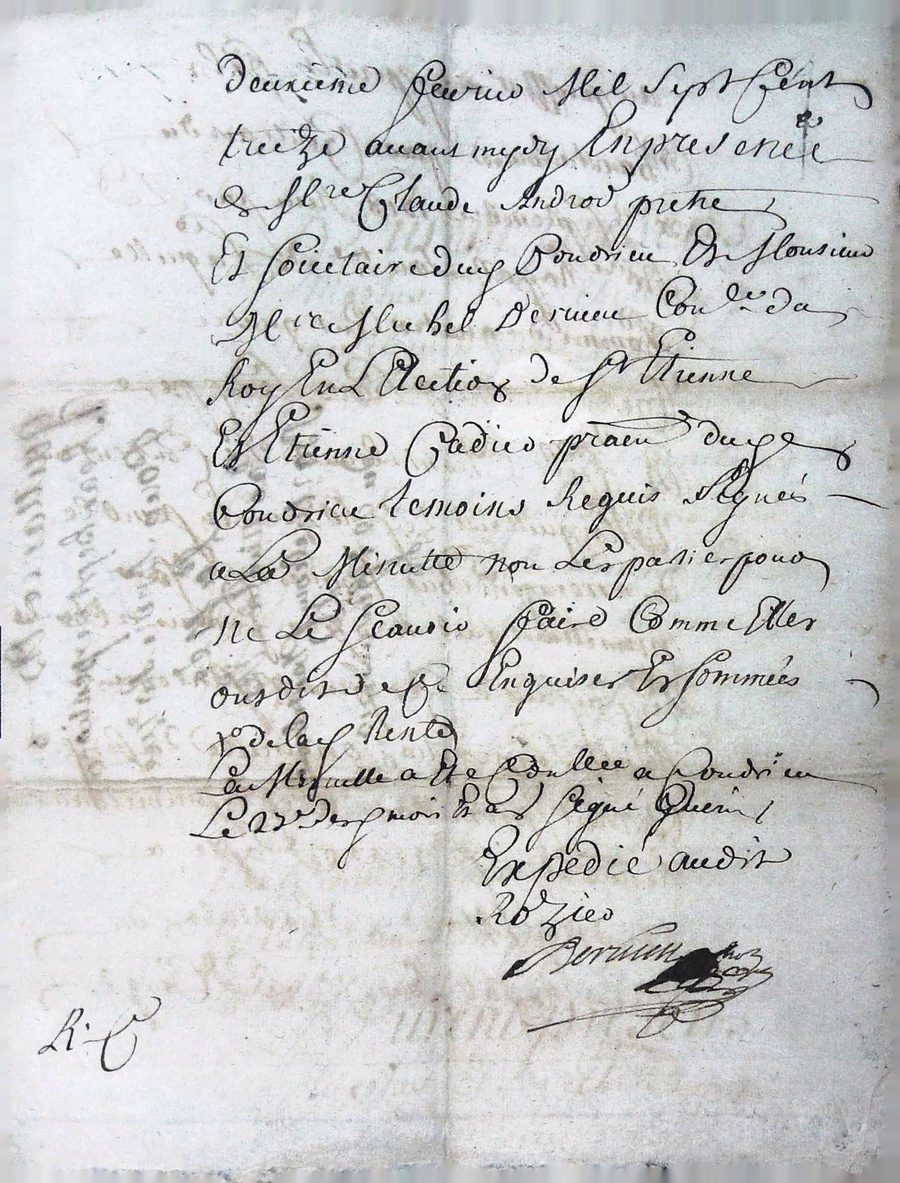 deuxieme fevrier Mil Sept Cent
treize avant mydy En presence
de Mre Claude Andror prêtre
Et Soicietaire dud Condrieu Et Monsieur
Mre Michel Dervieu Conler du
Roy En L Election de St Etienne
Et Etienne Cadier dud
Condrieu temoins Requis Signés
a La Minutte non Les parties pour
ne Le Scavoir faire Comme Elles
ont dit de ce Enquises Et Sommées
de lad Rente
La Minutte a Eté Conllée a Condrieu
Le 23e desd mois Et an Signé Guerin
Expedié audit
Rozier
Dervieu